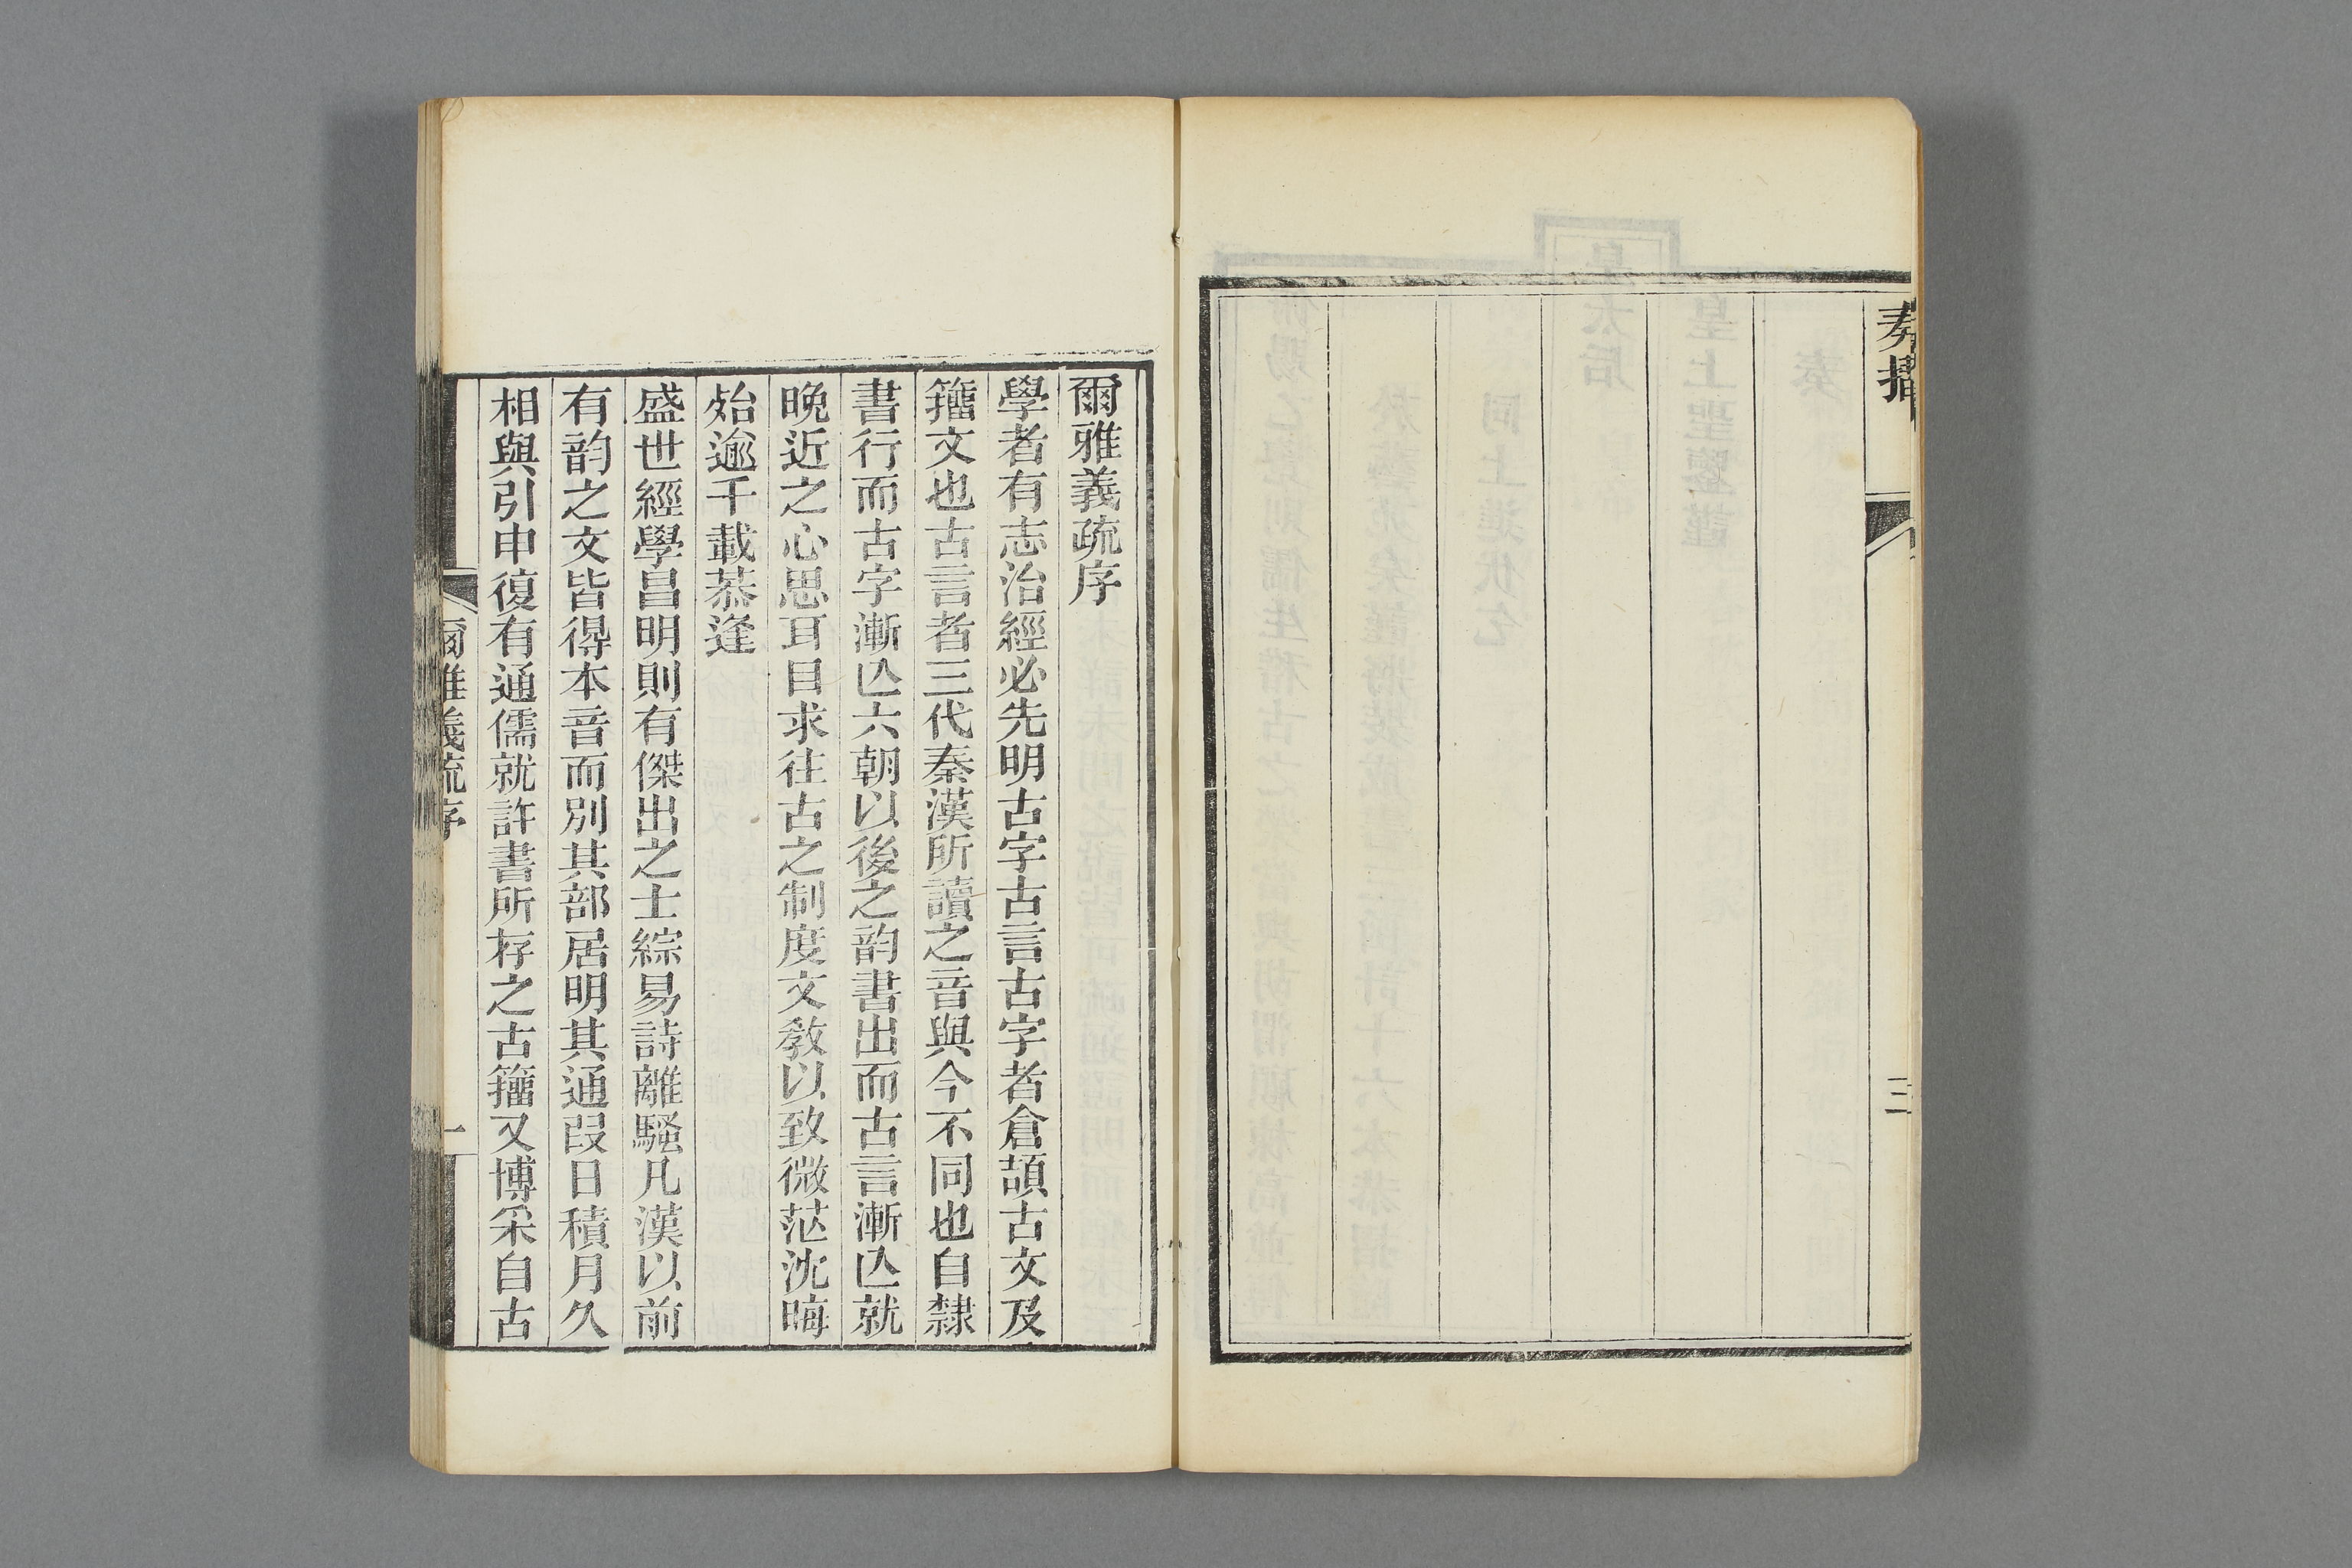 奏摺
三
爾雅義疏序
學者有志治經必先明古字古言古字者倉頡古文及
籒文也古言者三代秦漢所讀之音與今不同也自隸
書行而古字漸亾六朝以後之韵書出而古言漸亾就
晚近之心思耳目求往古之制度文敎以致微茫沈晦
殆逾千載恭逢
盛世經學昌明則有傑出之士綜易詩離騷凡漢以前
有韵之文皆得本音而別其部居明其通叚日積月久
相與引申復有通儒就許書所存之古籒又博采自古
爾雅義疏序
一